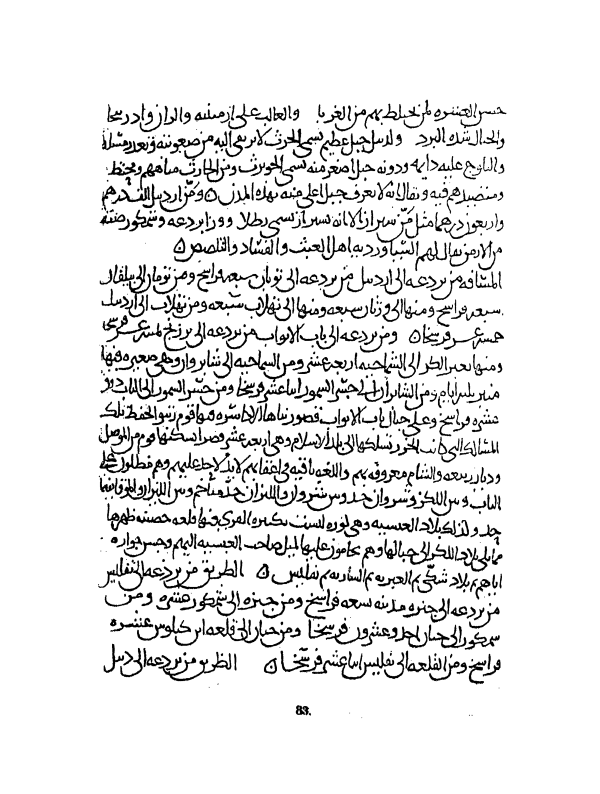 حسن العشره لمن يختلط بهم من الغربا والغالب على ارمينيه والران واذربيجان
والجبال شده البرد ولدبيل جبل عظيم يسمى الحرث لا يرتقى اليه من صعوبته وبعد مسلكه
والثلوج عليه دايمه ودونه جبل اصغر منه يسمى الحويرث ومن الحارث مياههم ومحتطبهم
ومتصيدهم فيه ويقال انه لا يعرف جبل اعلى منه بهذه المدن ومن اردبيل
واربعون درهما مثل من شيراز الا انه بشيراز يسمى رطلا ووراء بردعه وشمكور صنف
من الارمن يقال لهم السياورديه اهل العيث والفساد والتلصص
المسافه من بردعه الى اردبيل من بردعه الى يونان سبعه فراسخ ومن يونان الى بيلقان
سبعه فراسخ ومنها الى ورثان سبعه ومنها الى بلخاب سبعه ومن بلخاب الى اردبيل
خمسه عشر فرسخا ومن بردعه الى باب الابواب من بردعه الى برزنج ثمنيه عشر فرسخا
ومنها تعبر الكر الى الشماخيه اربعه عشر ومن الشماخيه الى شابران وهي صغيره فيها
منبر ثلثه ايام ومن الشابران الى جسر السمور اثنا عشر فرسخا ومن جسر السمور الى الباب
عشره فراسخ وعلى جبال باب الابواب قصور بناها الاكاسره فيها قوم رتبوا لحفظ تلك
المسالك التي كانت الخزر تسلكها الى بلد الاسلام وهي اربعه عشر قصرا يسكنها قوم من الموصل
وديار ربيعه والشام معروفه بهم واللغه باقيه في اعقابهم لا يد لاحد عليهم وهم مطلون على
الباب وبين اللكز وشروان حد وبين شروان واللايزان حد متاخم وبين اللايزان والموقانيه
حد
مما يلي بلاد اللكز الى جبالها وهم يحامون عليها لميل صاحب العبسيه اليهم وحسن جواره
اياهم ثم بلاد شكي ثم الصنبريه ثم الساريه ثم تفليس الطريق من بردعه الى تفليس
من بردعه الى جنزه مدينه تسعه فراسخ ومن جنزه الى شمكور عشره ومن
شمكور الى خنان احد وعشرون فرسخا ومن خنان الى قلعه ابن كندمان عشره
فراسخ ومن القلعه الى تفليس اثنا عشر فرسخا الطريق من بردعه الى دبيل
83.